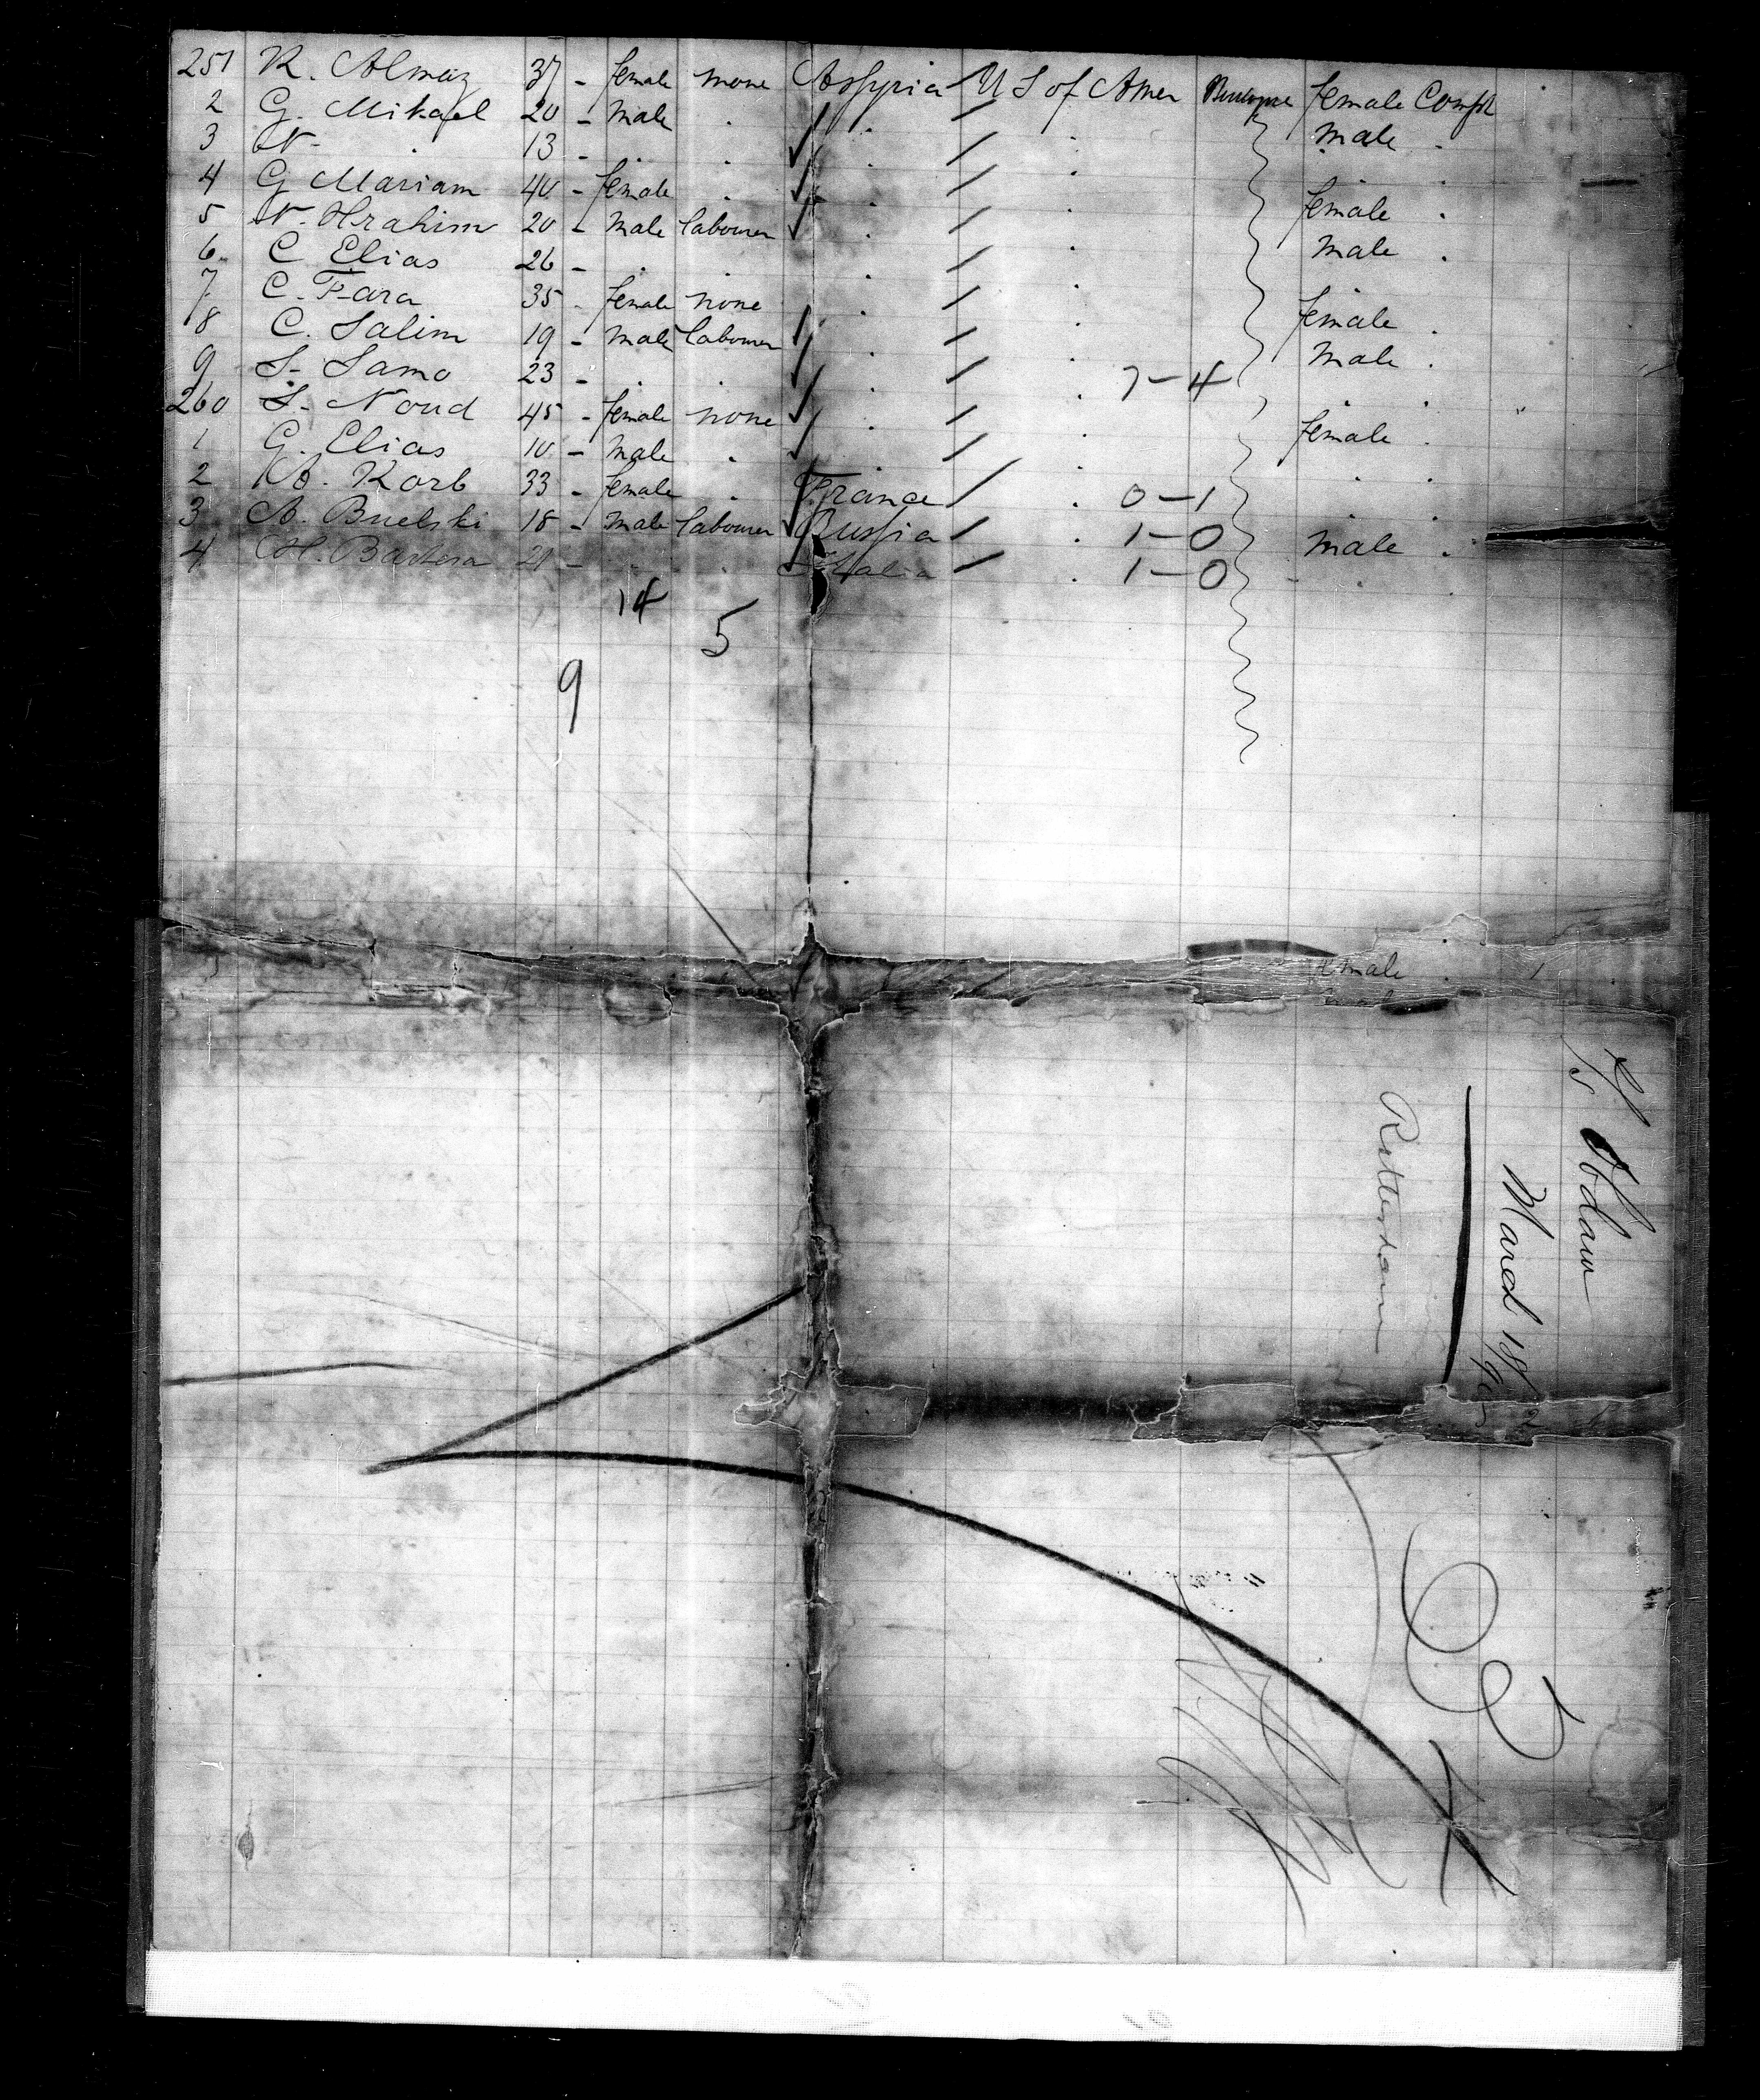 251 R. Almaz 37 - female none Assyria / U S of Amer female Comp
2 G. Mikael 20 - male . . / . male .
3 N- . 13 - . . . / . . .
4 G Mariam 40 - female . . / . female .
5 N. Hrahim 20 - male labourer . / . male .
6 C Elias 26 - . . . / . . .
7 C. Fara 35 - female none . / . female .
8 C. Salim 19 - male labourer . / . male .
9 S- Samo 23 - . . . / . 7-4 . .
260 S- Noud 45 - female none . / . female .
1 G. Elias 10 - male . . / . . .
2 A. Korb 33 - female . France / . 0-1 . .
3 A. Buelski 18 - male labourer Russia / . 1-0 male .
4 21 - . . Italia / . 1-0 - .
14
5
9
male
S/S Obdam
March 18/
Rotterdam